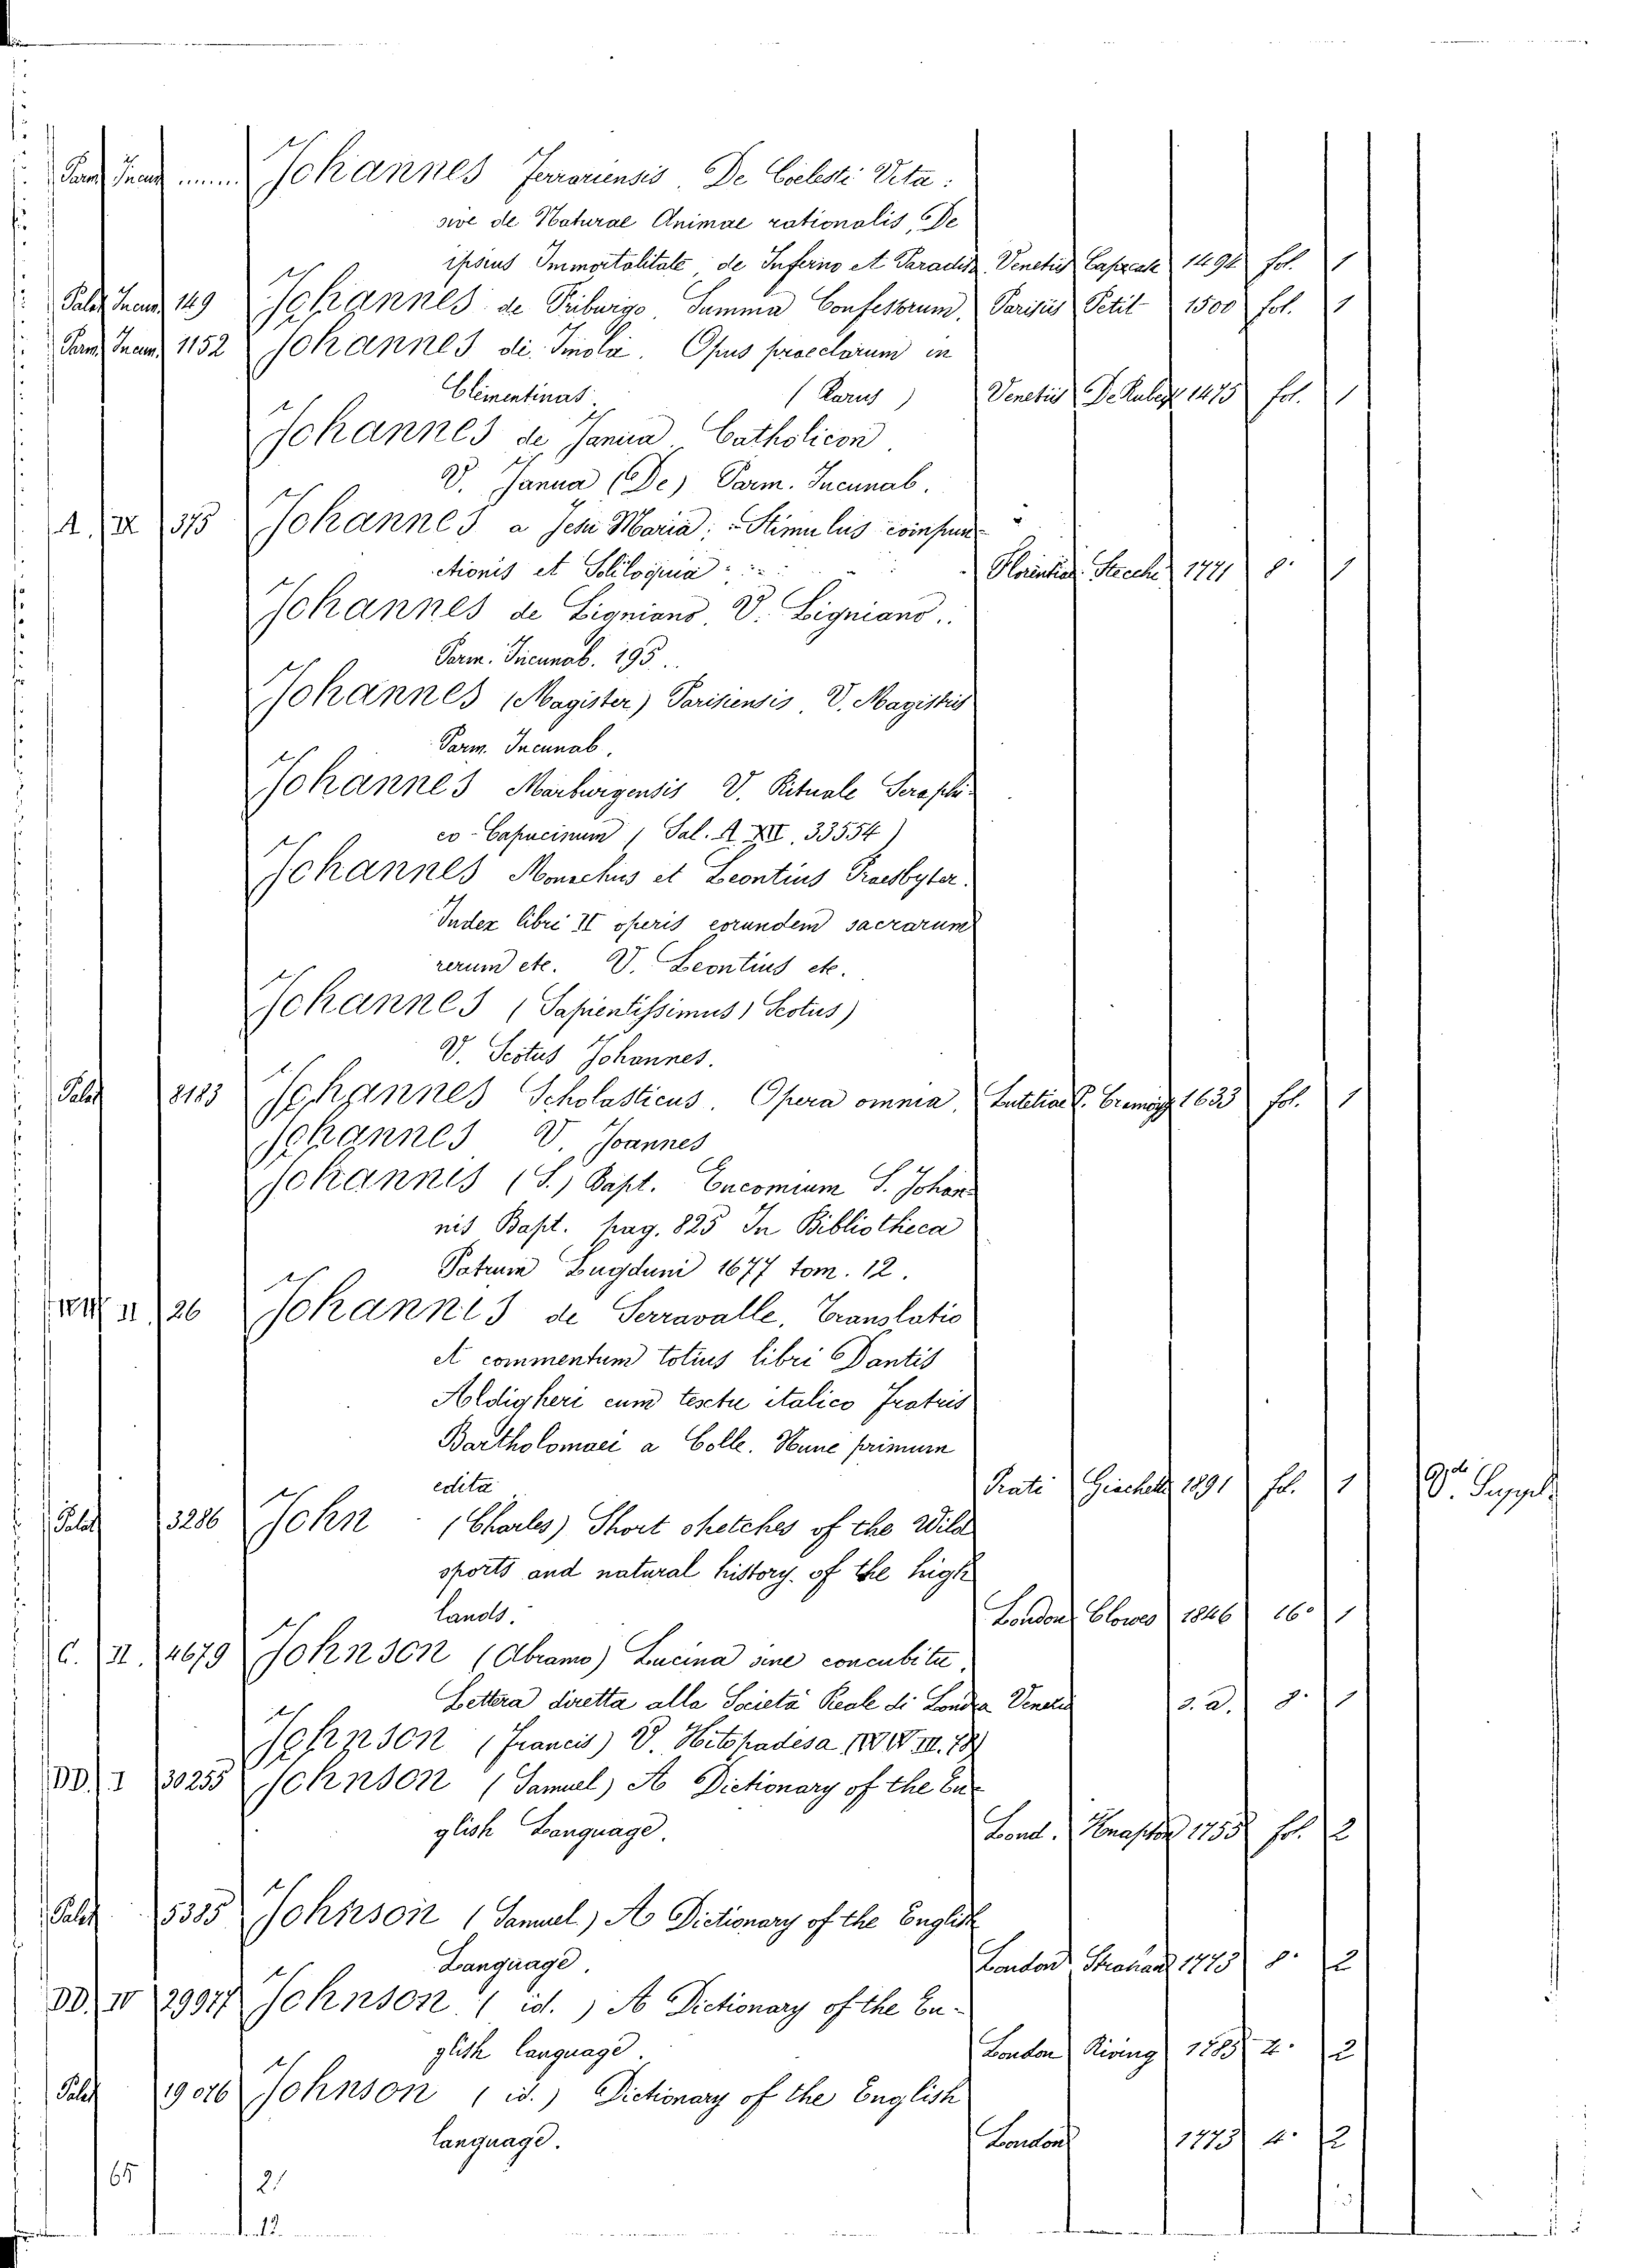 Parm Incun Johannes Ferrariensis. De Coelesti Vita:
sive de Naturae Animae rationalis, De
ipsius Immortalitate, de Inferno et Paradiso. Venetiis Capcasa 1494 fol. 1
Palat Incun 149 Johannes de Friburgo. Summa Confessorum. Parisiis Petit 1500 fol. 1
Parm Incun. 1152 Johannes de Imola. Opus praeclarum in
Clementinas. (Rarus) Venetiis De Rubeis 1475 fol. 1
Johannes de Janua. Catholicon.
V. Janua (De) Parm. Incunab.
A. IX 375 Johannes a Jesu Maria: Stimulus compun-
ctionis et Soliloquia Florentiae Stecchi 1771 8. 1
Johannes de Ligniano. V. Ligniano.
Parm. Incunab. 195.
Johannes (Magister) Parisiensis, V. Magistris
Parm. Incunab.
Johannes Marburgensis V. Rituale Seraphi-
co-Capucinum (Sal. A XII, 33554)
Johannes Monachus et Leontius Praesbyter.
Index libri II operis eorundem sacrarum
rerum etc. V. Leontius etc.
Johannes (Sapientissimus) Scotus)
V. Scotus Johannes.
Palat 8183 Johannes Scholasticus. Opera omnia, Lutetiae P. Cramoisy 1633 fol. 1
Johannes V. Joannes
Johannis (S.) Bapt. Encomium S. Johan-
nis Bapt. pag. 825 In Bibliotheca
Patrum Lugduni 1677 tom. 12.
II 26 Johannis de Serravalle, Translatio
et commentum totius libri Dantis
Aldigheri cum testu italico Fratris
Bartholomaei a Colle. Nunc primum
edita Prati Giachetti 1891 fol. 1 V. Suppl.
Palat 3286 John (Charles) Short sketches of the Wild
sports and natural history of the high
lands. London Clowes 1846 16° 1
C. II. 4679 Johnson (Abramo) Lucina sine concubitu.
Lettera diretta alla Società Reale di Londra Venezia s. a. 8. 1
Johnson (Francis) V. Hitopadesa
DD. I 30255 Johnson (Samuel) A Dictionary of the En-
glish Language. Lond. Knapton 1755 fol. 2
Palat 5335 Johnson (Samuel) A Dictionary of the English
Language. London Strahan 1773 8. 2
DD. IV 29977 Johnson (id.) A Dictionary of the En-
glish language. London Riving 1785 4. 2
Palat 19016 Johnson (id.) Dictionary of the English
language. London 1773 4. 2
65 21
12